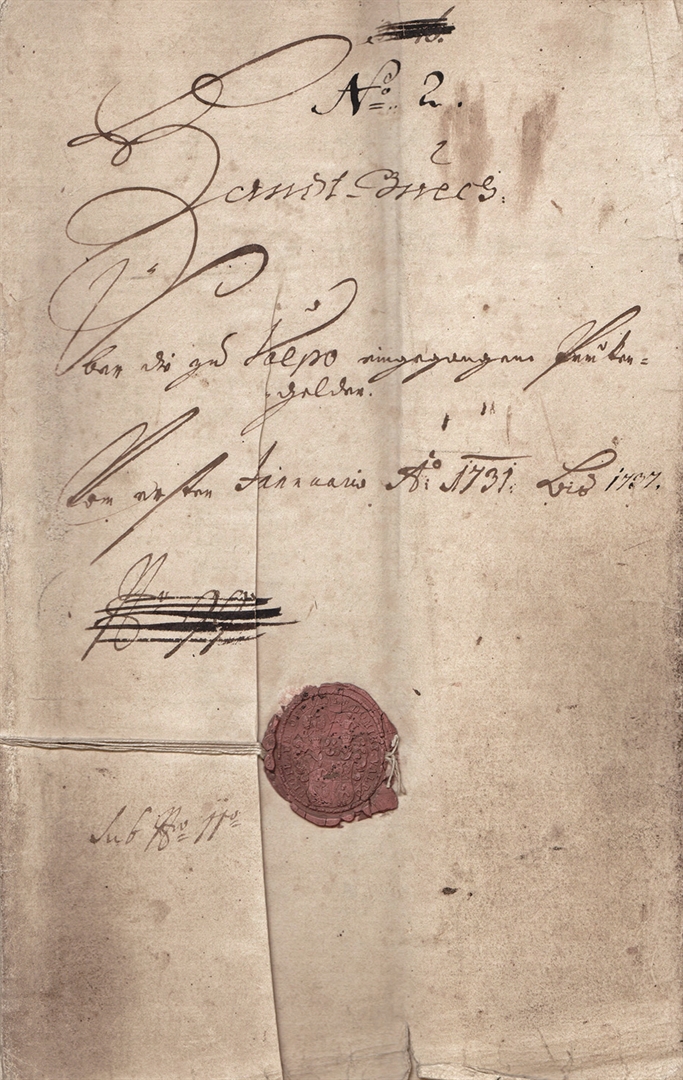 No: 2.
2
Handt-Buech.
Über die zu Volpo eingegangene
gelder.
Vom ersten Januario Ao: 1731. Bis 1737.
Sub No